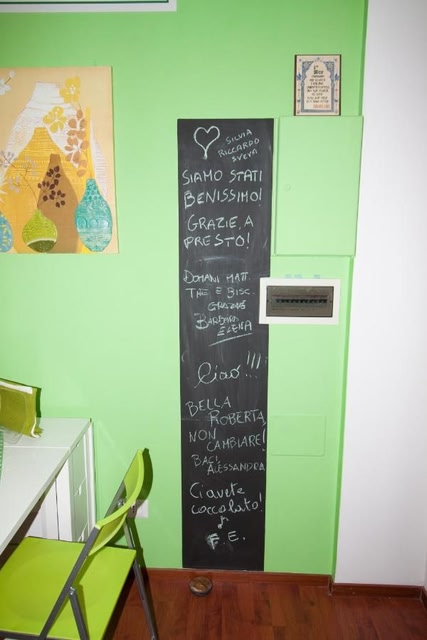 SILVIA
RICCARDO
SVEVA
SIAMO STATI
BENISSIMO!
GRAZIE, A
PRESTO!
DOMANI MATT.
THE E BISC.
GRAZIE
BARBARA
ELENA
Ciao!!!
BELLA
ROBERTA,
NON
CAMBIARE!
BACI
ALESSANDRA
Ci avete
coccolato!
F.E.